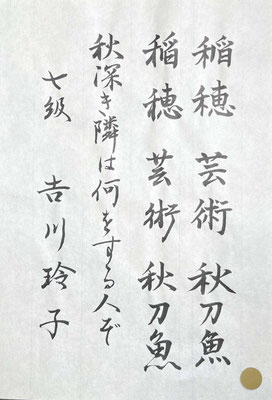 稲穂 芸術 秋刀魚
稲穂 芸術 秋刀魚
秋深き隣は何をする人ぞ
七級 吉川玲子